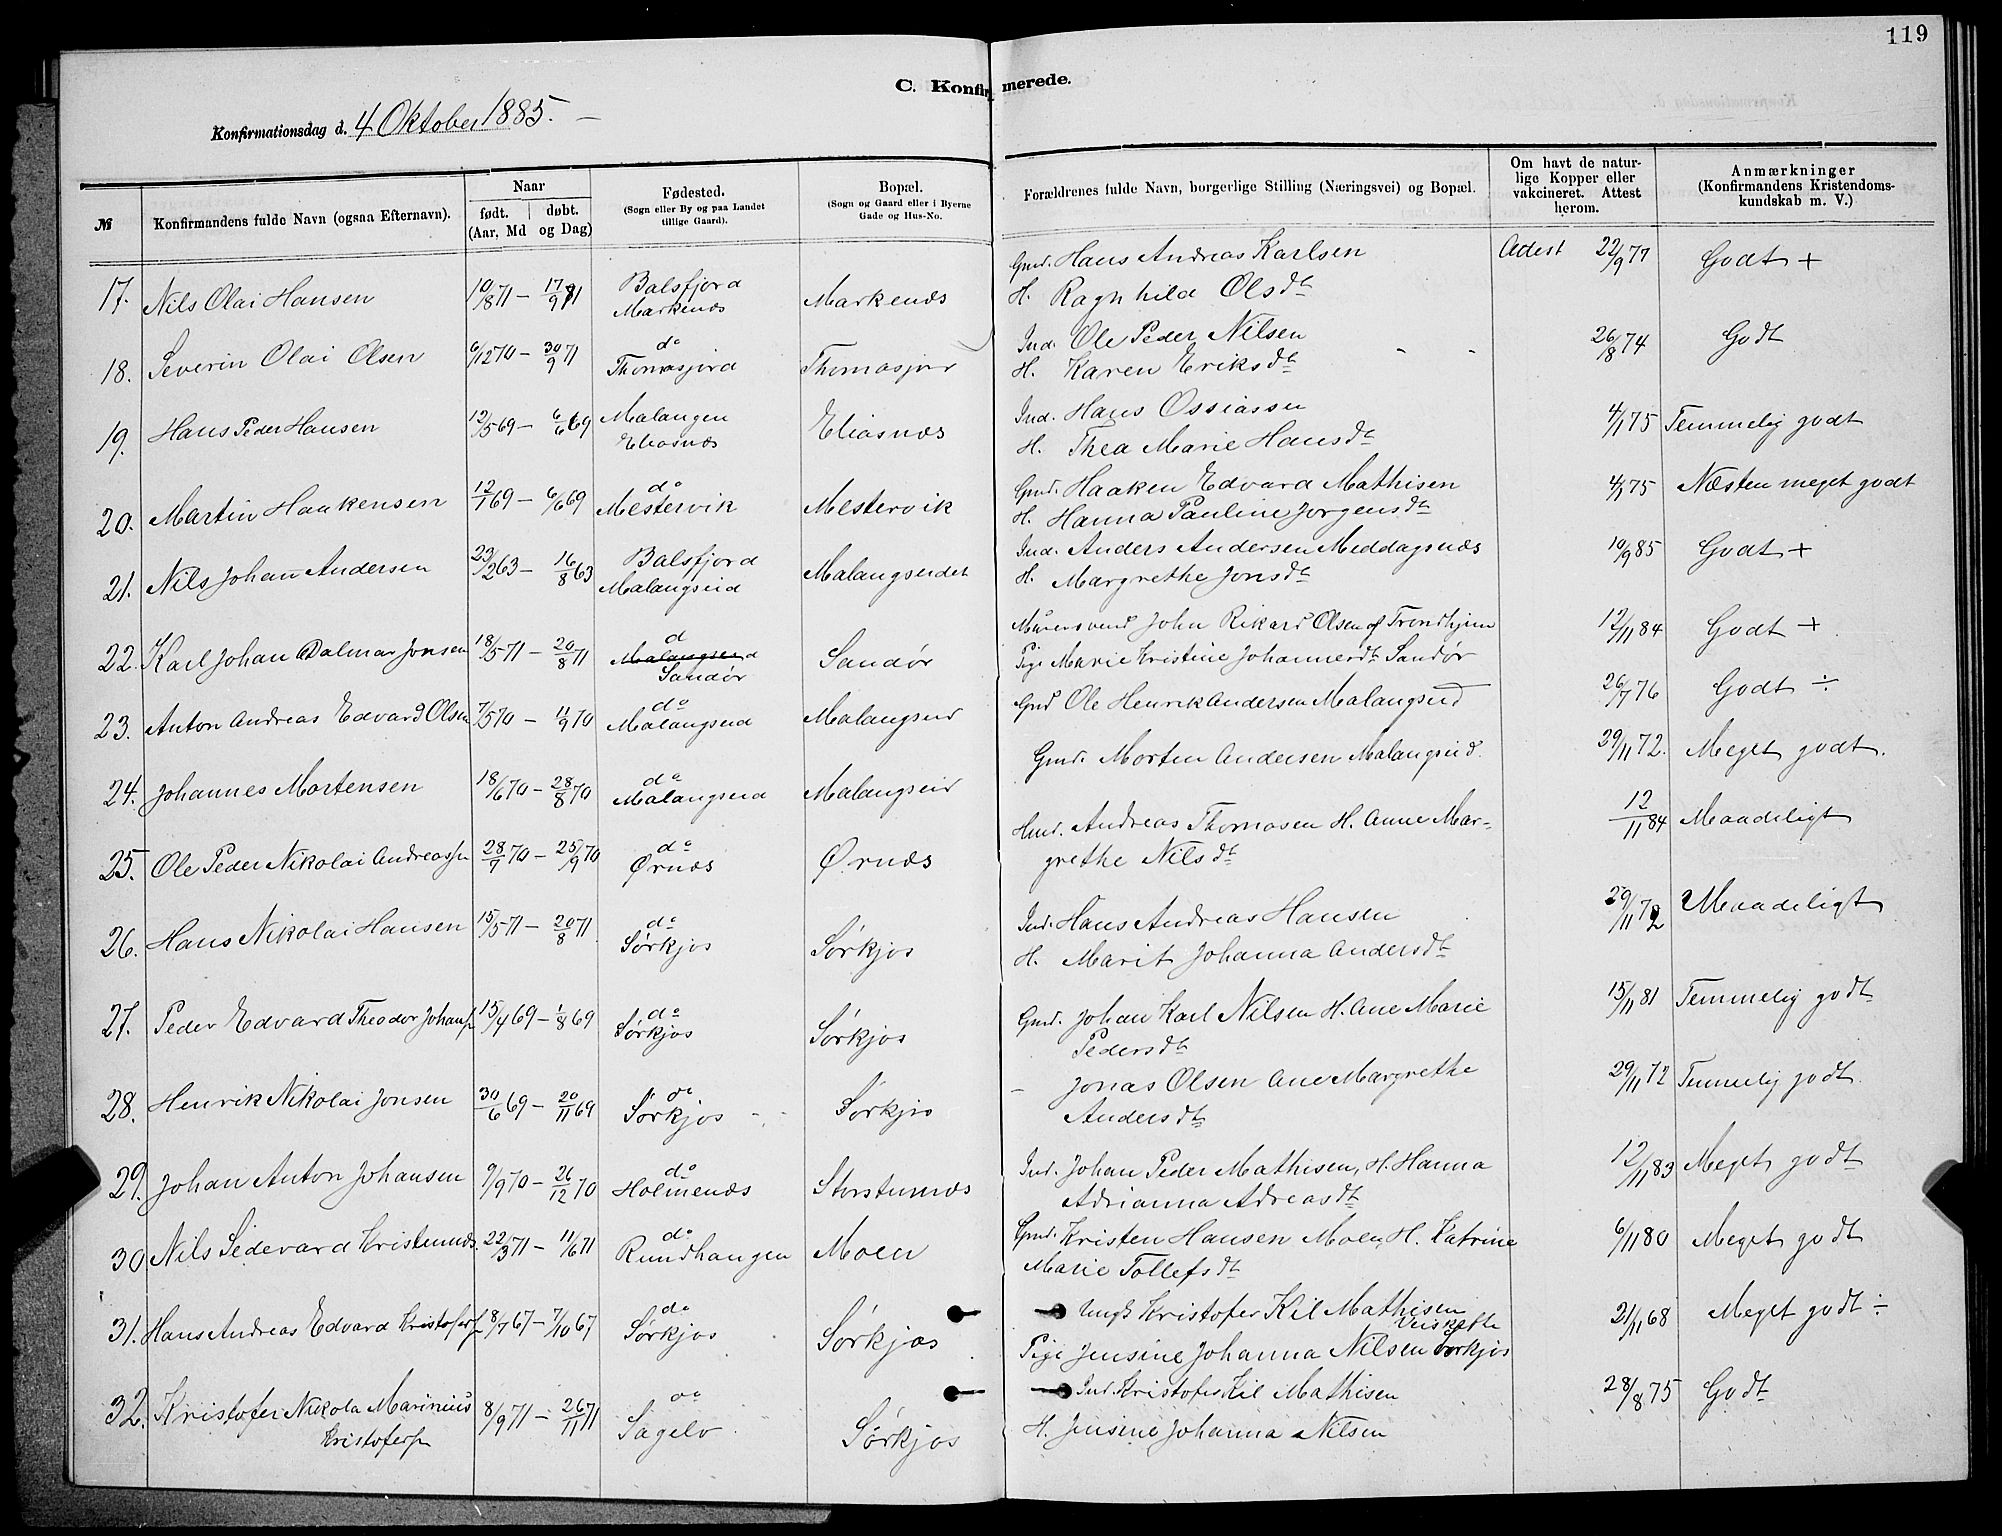 119
C. Konfirmerede.
Konfirmationsdag d. 4 Oktober 1885. –
№
Konfirmandens fulde Navn (ogsaa Efternavn).
Naar
født. døbt.
(Aar, Md og Dag)
Fødested.
(Sogn eller By og paa Landet tillige Gaard).
Bopæl.
(Sogn og Gaard eller i Byerne Gade og Hus-No.
Forældrenes fulde Navn, borgerlige Stilling (Næringsvei) og Bopæl.
Om havt de naturlige Kopper eller vakcineret. Attest herom.
Anmærkninger
(Konfirmandens Kristendomskundskab m. V.)
17. Nils Olai Hansen 10/8 71 – 17/9 71 Balsfjord Markenæs Markenæs Gmd. Hans Andreas Karlsen Attest 22/9 77 Godt +
H. Ragnhild Olsdt
18. Severin Olai Olsen 6/12 70 – 30/9 71 do Thomasjord Thomasjor Ind. Ole Peder Nilsen - - 26/8 74 Godt
H. Karen Eriksdt
19. Hans Peder Hansen 12/5 69 – 6/6 69 Malangen Eliasnæs Eliasnæs Ind. Hans Ossiassen 4/1 75 Temmelig godt
H. Thea Marie Hansdt
20. Martin Haakensen 12/1 69 – 6/6 69 do Mestervik Mestervik Gmd. Haaken Edvard Mathisen 4/1 75 Næsten meget godt
H. Hanna Pauline Jørgensdt
21. Nils Johan Andersen 23/2 63 – 16/8 63 Balsfjord Malangseid Malangseidet Ind. Anders Andersen Meddagsnæs 10/9 85 Godt +
H. Margrethe Jonsdt
22. Karl Johan Dalmar Jonsen 18/5 71 – 20/8 71 d Malangseid Sandør Sandør Murersvend John Rikard Olsen af Trondhjem 12/11 84 Godt +
Pige Marie Kristine Johannesdt Sandør
23. Anton Andreas Edvard Olsen 7/5 70 – 11/9 70 do Malangseid Malangseid Gmd Ole Henrik Andersen Malangseid 26/7 76 Godt ÷
24. Johannes Mortensen 18/6 70 – 28/8 70 do Malangseid Malangseid Gmd. Morten Andersen Malangseid. 29/11 72. Meget godt.
25. Ole Peder Nikolai Andreassen 28/7 70 – 25/9 70 do Ørnæs Ørnæs Hmd. Andreas Thomasen H. Anne Mar- 12/11 84 Maadeligt
grethe Nilsdt
26. Hans Nikolai Hansen 15/5 71 – 20/8 71 do Sørkjos Sørkjos Ind. Hans Andreas Hansen 29/11 72 Maadeligt
H. Marit Johanna Andersdt
27. Peder Edvard Theodor Johans. 15/4 69 – 1/8 69 do Sørkjos Sørkjos Gmd. Johan Karl Nilsen H. Ane Marie 15/11 81 Temmelig godt
Pedersdt
28. Henrik Nikolai Jonsen 30/6 69 – 20/11 69 do Sørkjos Sørkjos – Jonas Olsen Ane Margrethe 29/11 72 Temmelig godt.
Andersdt
29. Johan Anton Johansen 9/9 70 – 26/12 70 do Holmenæs Storstennæs Ind. Johan Peder Mathisen, H. Hanna 12/11 83 Meget godt
Adrianna Adreasdt
30 Nils Sedevard Kristens. 22/3 71 – 11/6 71 do Rundhaugen Moen Gmd. Kristen Hansen Moen, H. Katrine 6/11 80 Meget godt
Marie Tollefsdt
31. Hans Andreas Edvard Kristofers. 8/7 67 – 7/10 67 do Sørkjos Sørkjos Ungk Kristofer Kil Mathisen 21/11 68 Meget godt ÷
Pige Jensine Johanna Nilsen Sørkjos
32. Kristofer Nikola Marinius Kristofers. 8/9 71 – 26/11 71 do Sagelv Sørkjos Ind. Kristofer Kil Mathisen 28/8 75 Godt
H. Jensine Johanna Nilsen